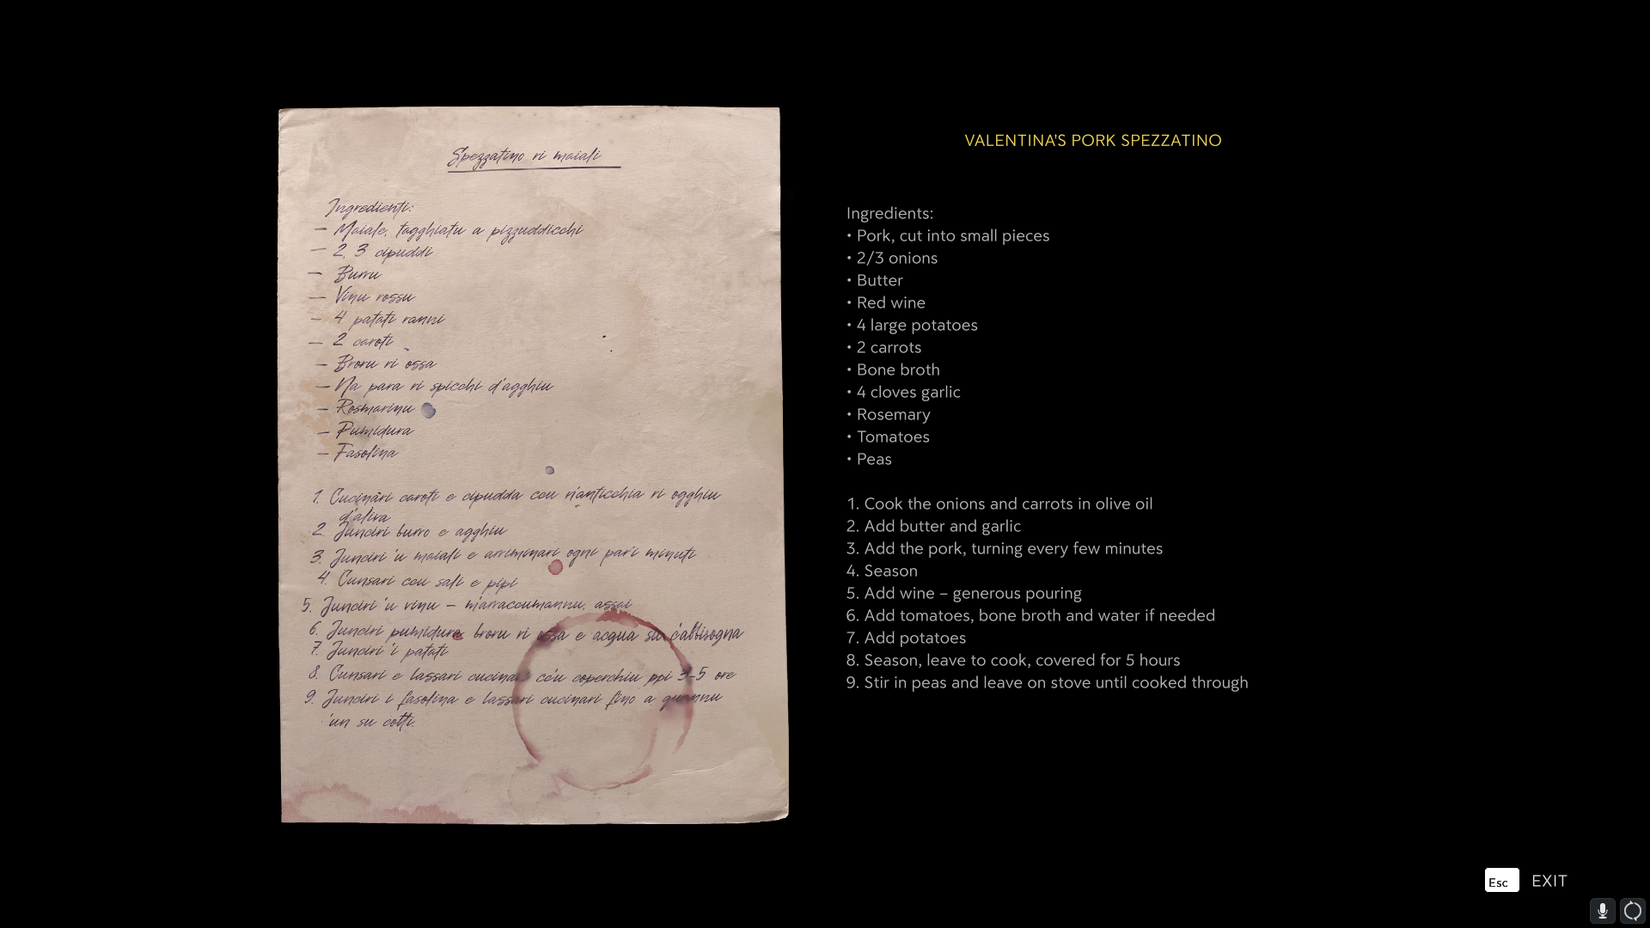 Spezzatino ri maiali
Ingredienti:
– Maiale, tagghiatu a pizzuddicchi
– 2, 3 cipuddi
– Burru
– Vinu rossu
– 4 patati ranni
– 2 caroti
– Broru ri ossa
– Na para ri spicchi d'agghiu
– Rosmarinu
– Pumidura
– Fasolina
1. Cucinari caroti e cipudda cou n'anticchia ri ogghiu
d'aliva
2. Junciri burro e agghiu
3. Junciri 'u maiali e arriminari ogni pari minuti
4. Cunsari cou sali e pipi
5. Junciri 'u vinu – m'arraccumannu, assai
6. Junciri pumidura broru ri ossa e acqua su c'abbisogna
7. Junciri 'i patati
8. Cunsari e lassari cucinari cóu coperchiu ppi 3-5 ore
9. Junciri i fasolina e lassari cucinari fino a quannu
'un su cotti.
VALENTINA'S PORK SPEZZATINO
Ingredients:
• Pork, cut into small pieces
• 2/3 onions
• Butter
• Red wine
• 4 large potatoes
• 2 carrots
• Bone broth
• 4 cloves garlic
• Rosemary
• Tomatoes
• Peas
1. Cook the onions and carrots in olive oil
2. Add butter and garlic
3. Add the pork, turning every few minutes
4. Season
5. Add wine – generous pouring
6. Add tomatoes, bone broth and water if needed
7. Add potatoes
8. Season, leave to cook, covered for 5 hours
9. Stir in peas and leave on stove until cooked through
Esc EXIT